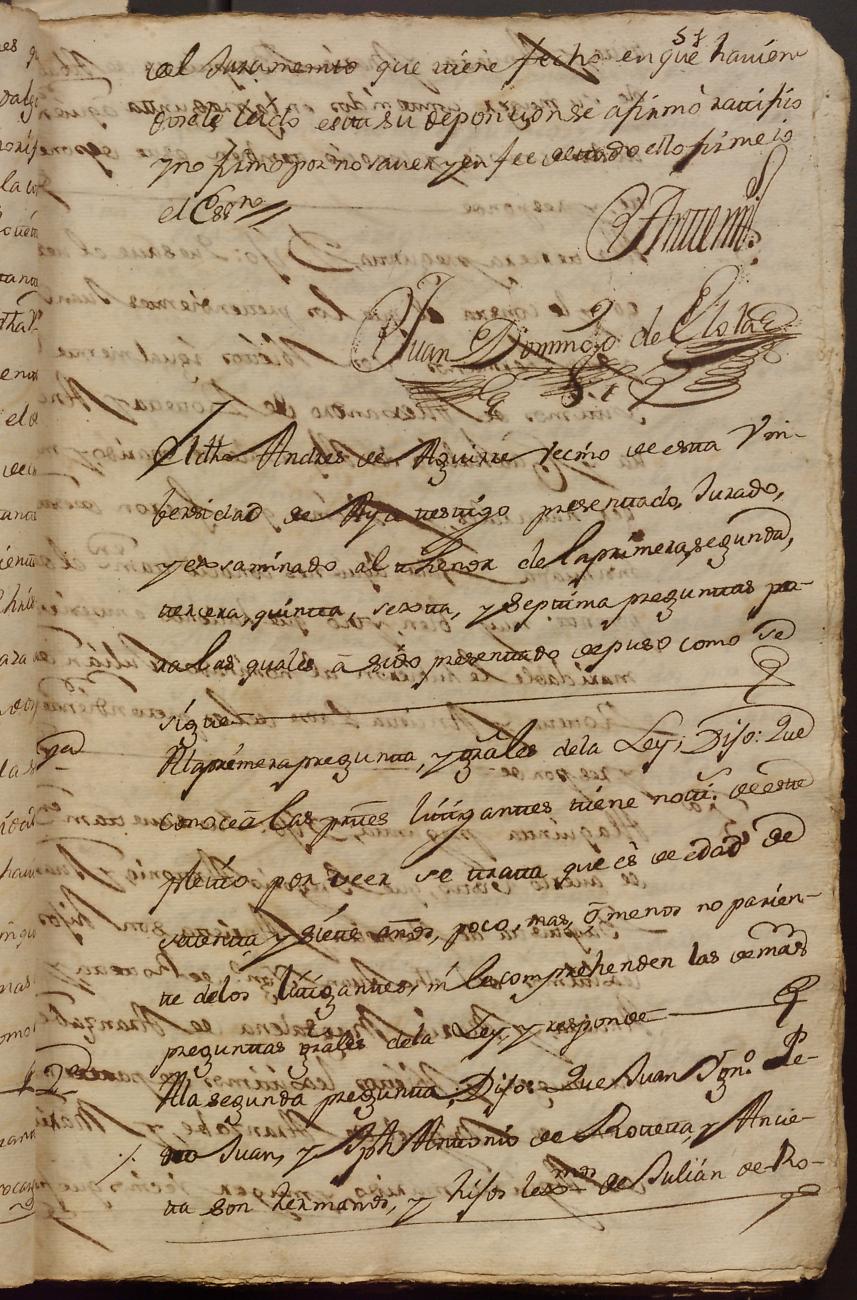 51
al Juramento que tiene fecho en que havien
dosele leido esta su deposicion se afirmò ratifico
y no firmo por no saver y en fee de todo ello firme io
el Essno
Anttemi
Juan Domingo de
El dho Andres de Aguirre vecino de esta Vni-
bersidad de Aya testigo presentado, Jurado,
y exsaminado al thenor de la primera, segunda,
tercera, quinta, sexta, y septima preguntas pa-
ra las quales à sido presentado depuso como se
sigue
1ª
A la primera pregunta, y grâles de la Ley; Dijo: Que
conoce â las partes litigantes tiene notiª. de este
Pleito por veer se trata que es de edad de
setenta y siete años, poco, mas, ô menos no parien-
te de los litigantes, ni le comprehenden las demas
preguntas grâles de la Ley, y responde
2ª
A la segunda pregunta, Dijo: Que Juan Ygnº. Pe-
dro Juan, y Jph Antonio de Roteta, y Ancie-
ta son hermanos, y hijos lexmos de Julián de Ro-